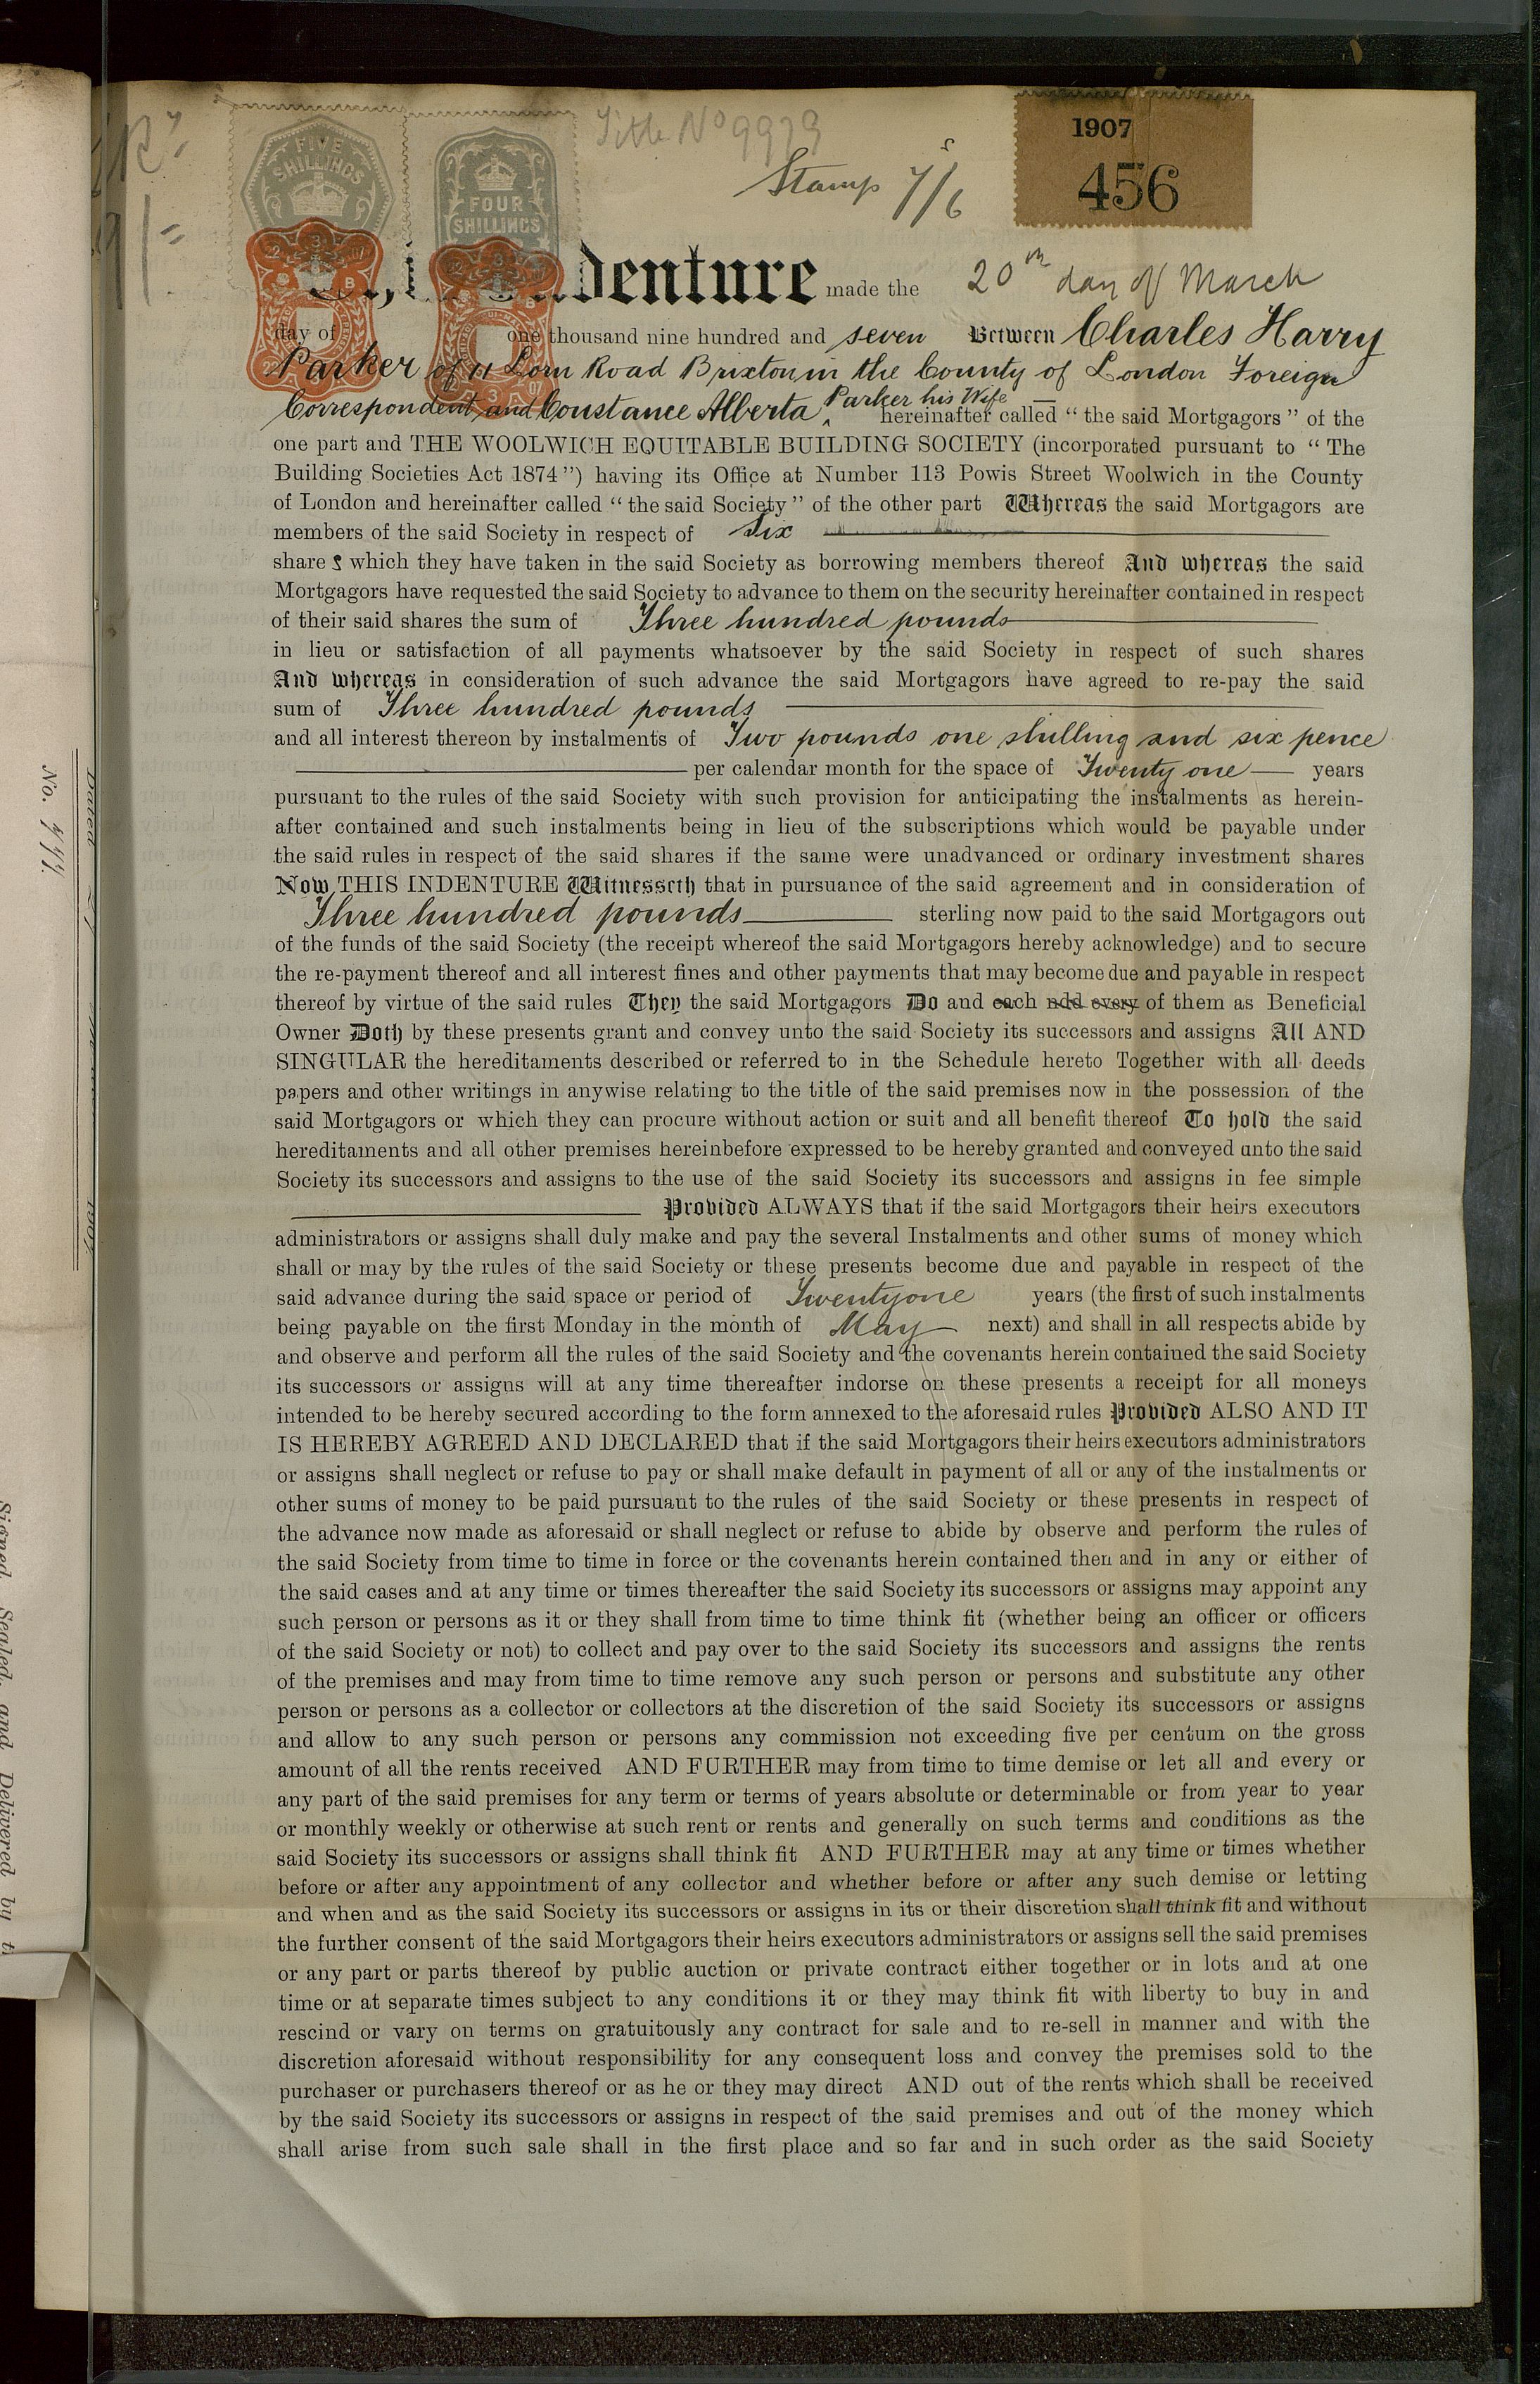 Title No 9979
Stamp 7/6
1907
456
FIVE SHILLINGS
FOUR SHILLINGS
Indenture made the 20th day of March
day of one thousand nine hundred and seven Between Charles Harry
Parker of 11 Lorn Road Brixton in the County of London Foreign
Correspondent and Constance Alberta Parker his Wife hereinafter called “the said Mortgagors” of the
one part and THE WOOLWICH EQUITABLE BUILDING SOCIETY (incorporated pursuant to “The
Building Societies Act 1874”) having its Office at Number 113 Powis Street Woolwich in the County
of London and hereinafter called “the said Society” of the other part Whereas the said Mortgagors are
members of the said Society in respect of Six
shares which they have taken in the said Society as borrowing members thereof And whereas the said
Mortgagors have requested the said Society to advance to them on the security hereinafter contained in respect
of their said shares the sum of Three hundred pounds
in lieu or satisfaction of all payments whatsoever by the said Society in respect of such shares
And whereas in consideration of such advance the said Mortgagors have agreed to re-pay the said
sum of Three hundred pounds
and all interest thereon by instalments of Two pounds one shilling and six pence
per calendar month for the space of Twenty one years
pursuant to the rules of the said Society with such provision for anticipating the instalments as herein-
after contained and such instalments being in lieu of the subscriptions which would be payable under
the said rules in respect of the said shares if the same were unadvanced or ordinary investment shares
Now THIS INDENTURE Witnesseth that in pursuance of the said agreement and in consideration of
Three hundred pounds sterling now paid to the said Mortgagors out
of the funds of the said Society (the receipt whereof the said Mortgagors hereby acknowledge) and to secure
the re-payment thereof and all interest fines and other payments that may become due and payable in respect
thereof by virtue of the said rules They the said Mortgagors Do and each and every of them as Beneficial
Owner Doth by these presents grant and convey unto the said Society its successors and assigns All AND
SINGULAR the hereditaments described or referred to in the Schedule hereto Together with all deeds
papers and other writings in anywise relating to the title of the said premises now in the possession of the
said Mortgagors or which they can procure without action or suit and all benefit thereof To hold the said
hereditaments and all other premises hereinbefore expressed to be hereby granted and conveyed unto the said
Society its successors and assigns to the use of the said Society its successors and assigns in fee simple
Provided ALWAYS that if the said Mortgagors their heirs executors
administrators or assigns shall duly make and pay the several Instalments and other sums of money which
shall or may by the rules of the said Society or these presents become due and payable in respect of the
said advance during the said space or period of Twentyone years (the first of such instalments
being payable on the first Monday in the month of May next) and shall in all respects abide by
and observe and perform all the rules of the said Society and the covenants herein contained the said Society
its successors or assigns will at any time thereafter indorse on these presents a receipt for all moneys
intended to be hereby secured according to the form annexed to the aforesaid rules Provided ALSO AND IT
IS HEREBY AGREED AND DECLARED that if the said Mortgagors their heirs executors administrators
or assigns shall neglect or refuse to pay or shall make default in payment of all or any of the instalments or
other sums of money to be paid pursuant to the rules of the said Society or these presents in respect of
the advance now made as aforesaid or shall neglect or refuse to abide by observe and perform the rules of
the said Society from time to time in force or the covenants herein contained then and in any or either of
the said cases and at any time or times thereafter the said Society its successors or assigns may appoint any
such person or persons as it or they shall from time to time think fit (whether being an officer or officers
of the said Society or not) to collect and pay over to the said Society its successors and assigns the rents
of the premises and may from time to time remove any such person or persons and substitute any other
person or persons as a collector or collectors at the discretion of the said Society its successors or assigns
and allow to any such person or persons any commission not exceeding five per centum on the gross
amount of all the rents received AND FURTHER may from time to time demise or let all and every or
any part of the said premises for any term or terms of years absolute or determinable or from year to year
or monthly weekly or otherwise at such rent or rents and generally on such terms and conditions as the
said Society its successors or assigns shall think fit AND FURTHER may at any time or times whether
before or after any appointment of any collector and whether before or after any such demise or letting
and when and as the said Society its successors or assigns in its or their discretion shall think fit and without
the further consent of the said Mortgagors their heirs executors administrators or assigns sell the said premises
or any part or parts thereof by public auction or private contract either together or in lots and at one
time or at separate times subject to any conditions it or they may think fit with liberty to buy in and
rescind or vary on terms on gratuitously any contract for sale and to re-sell in manner and with the
discretion aforesaid without responsibility for any consequent loss and convey the premises sold to the
purchaser or purchasers thereof or as he or they may direct AND out of the rents which shall be received
by the said Society its successors or assigns in respect of the said premises and out of the money which
shall arise from such sale shall in the first place and so far and in such order as the said Society
No.
Signed Sealed and Delivered by